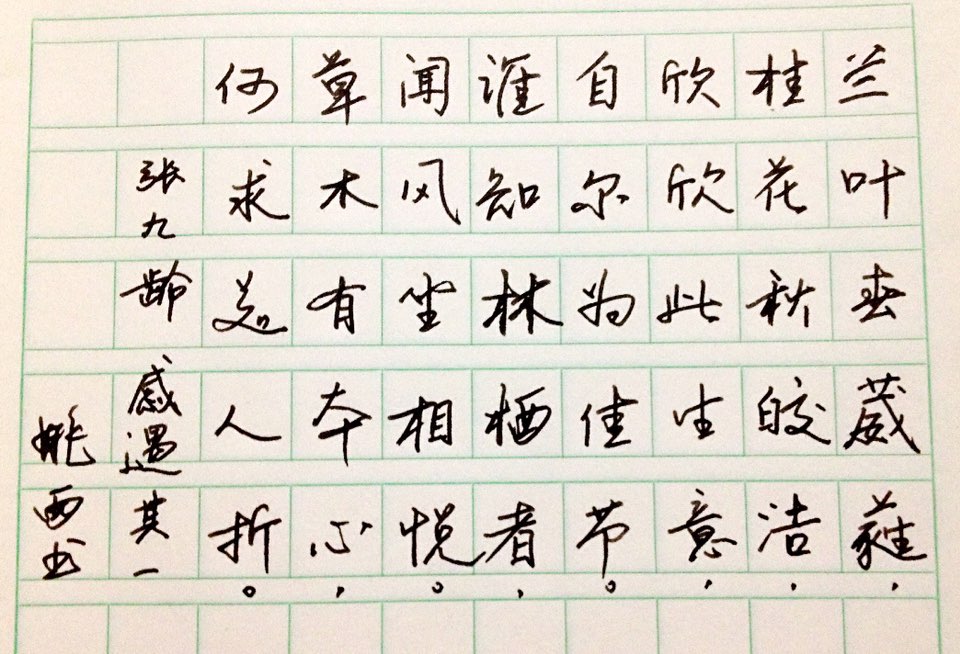 兰叶春葳蕤，
桂花秋皎洁，
欣欣此生意，
自尔为佳节。
谁知林栖者，
闻风坐相悦。
草木有本心，
何求美人折。
张九龄 感遇其一
西书